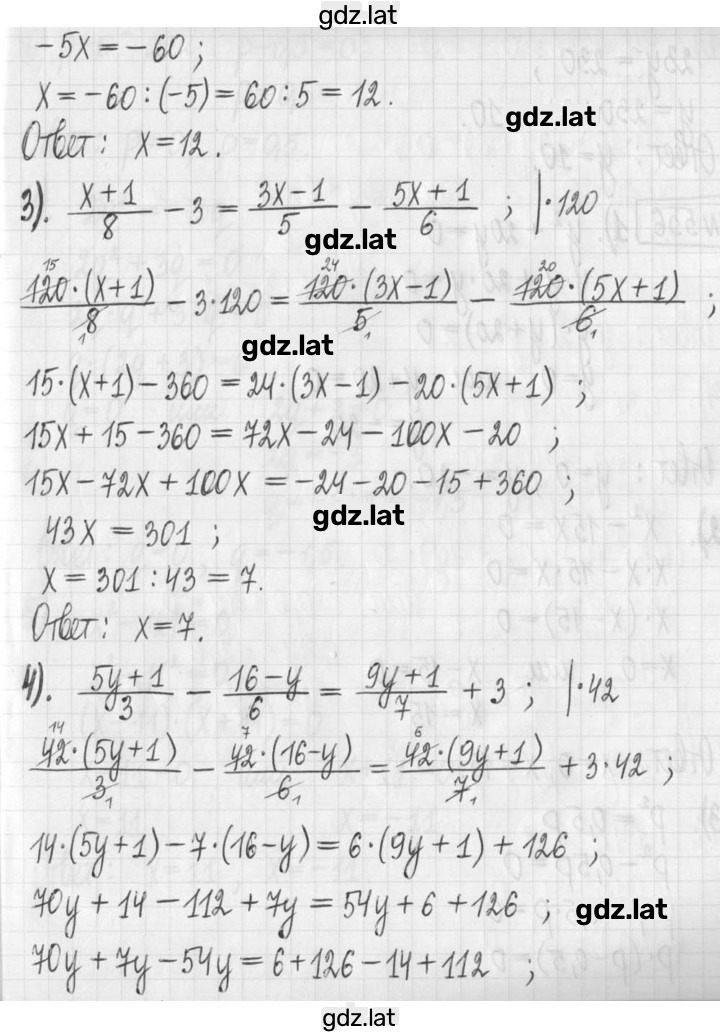 gdz.lat
-5x = -60 ;
x = -60 : (-5) = 60 : 5 = 12 .
gdz.lat
Ответ: x = 12 .
3). (x+1)/8 - 3 = (3x-1)/5 - (5x+1)/6 ; |·120
gdz.lat
15 24 20
120·(x+1)/8 - 3·120 = 120·(3x-1)/5 - 120·(5x+1)/6 ;
1 1 1
gdz.lat
15·(x+1) - 360 = 24·(3x-1) - 20·(5x+1) ;
15x + 15 - 360 = 72x - 24 - 100x - 20 ;
15x - 72x + 100x = -24 - 20 - 15 + 360 ;
gdz.lat
43x = 301 ;
x = 301 : 43 = 7 .
Ответ: x = 7 .
4). (5y+1)/3 - (16-y)/6 = (9y+1)/7 + 3 ; |·42
14 7 6
42·(5y+1)/3 - 42·(16-y)/6 = 42·(9y+1)/7 + 3·42 ;
1 1 1
14·(5y+1) - 7·(16-y) = 6·(9y+1) + 126 ;
70y + 14 - 112 + 7y = 54y + 6 + 126 ;
gdz.lat
70y + 7y - 54y = 6 + 126 - 14 + 112 ;
gdz.lat